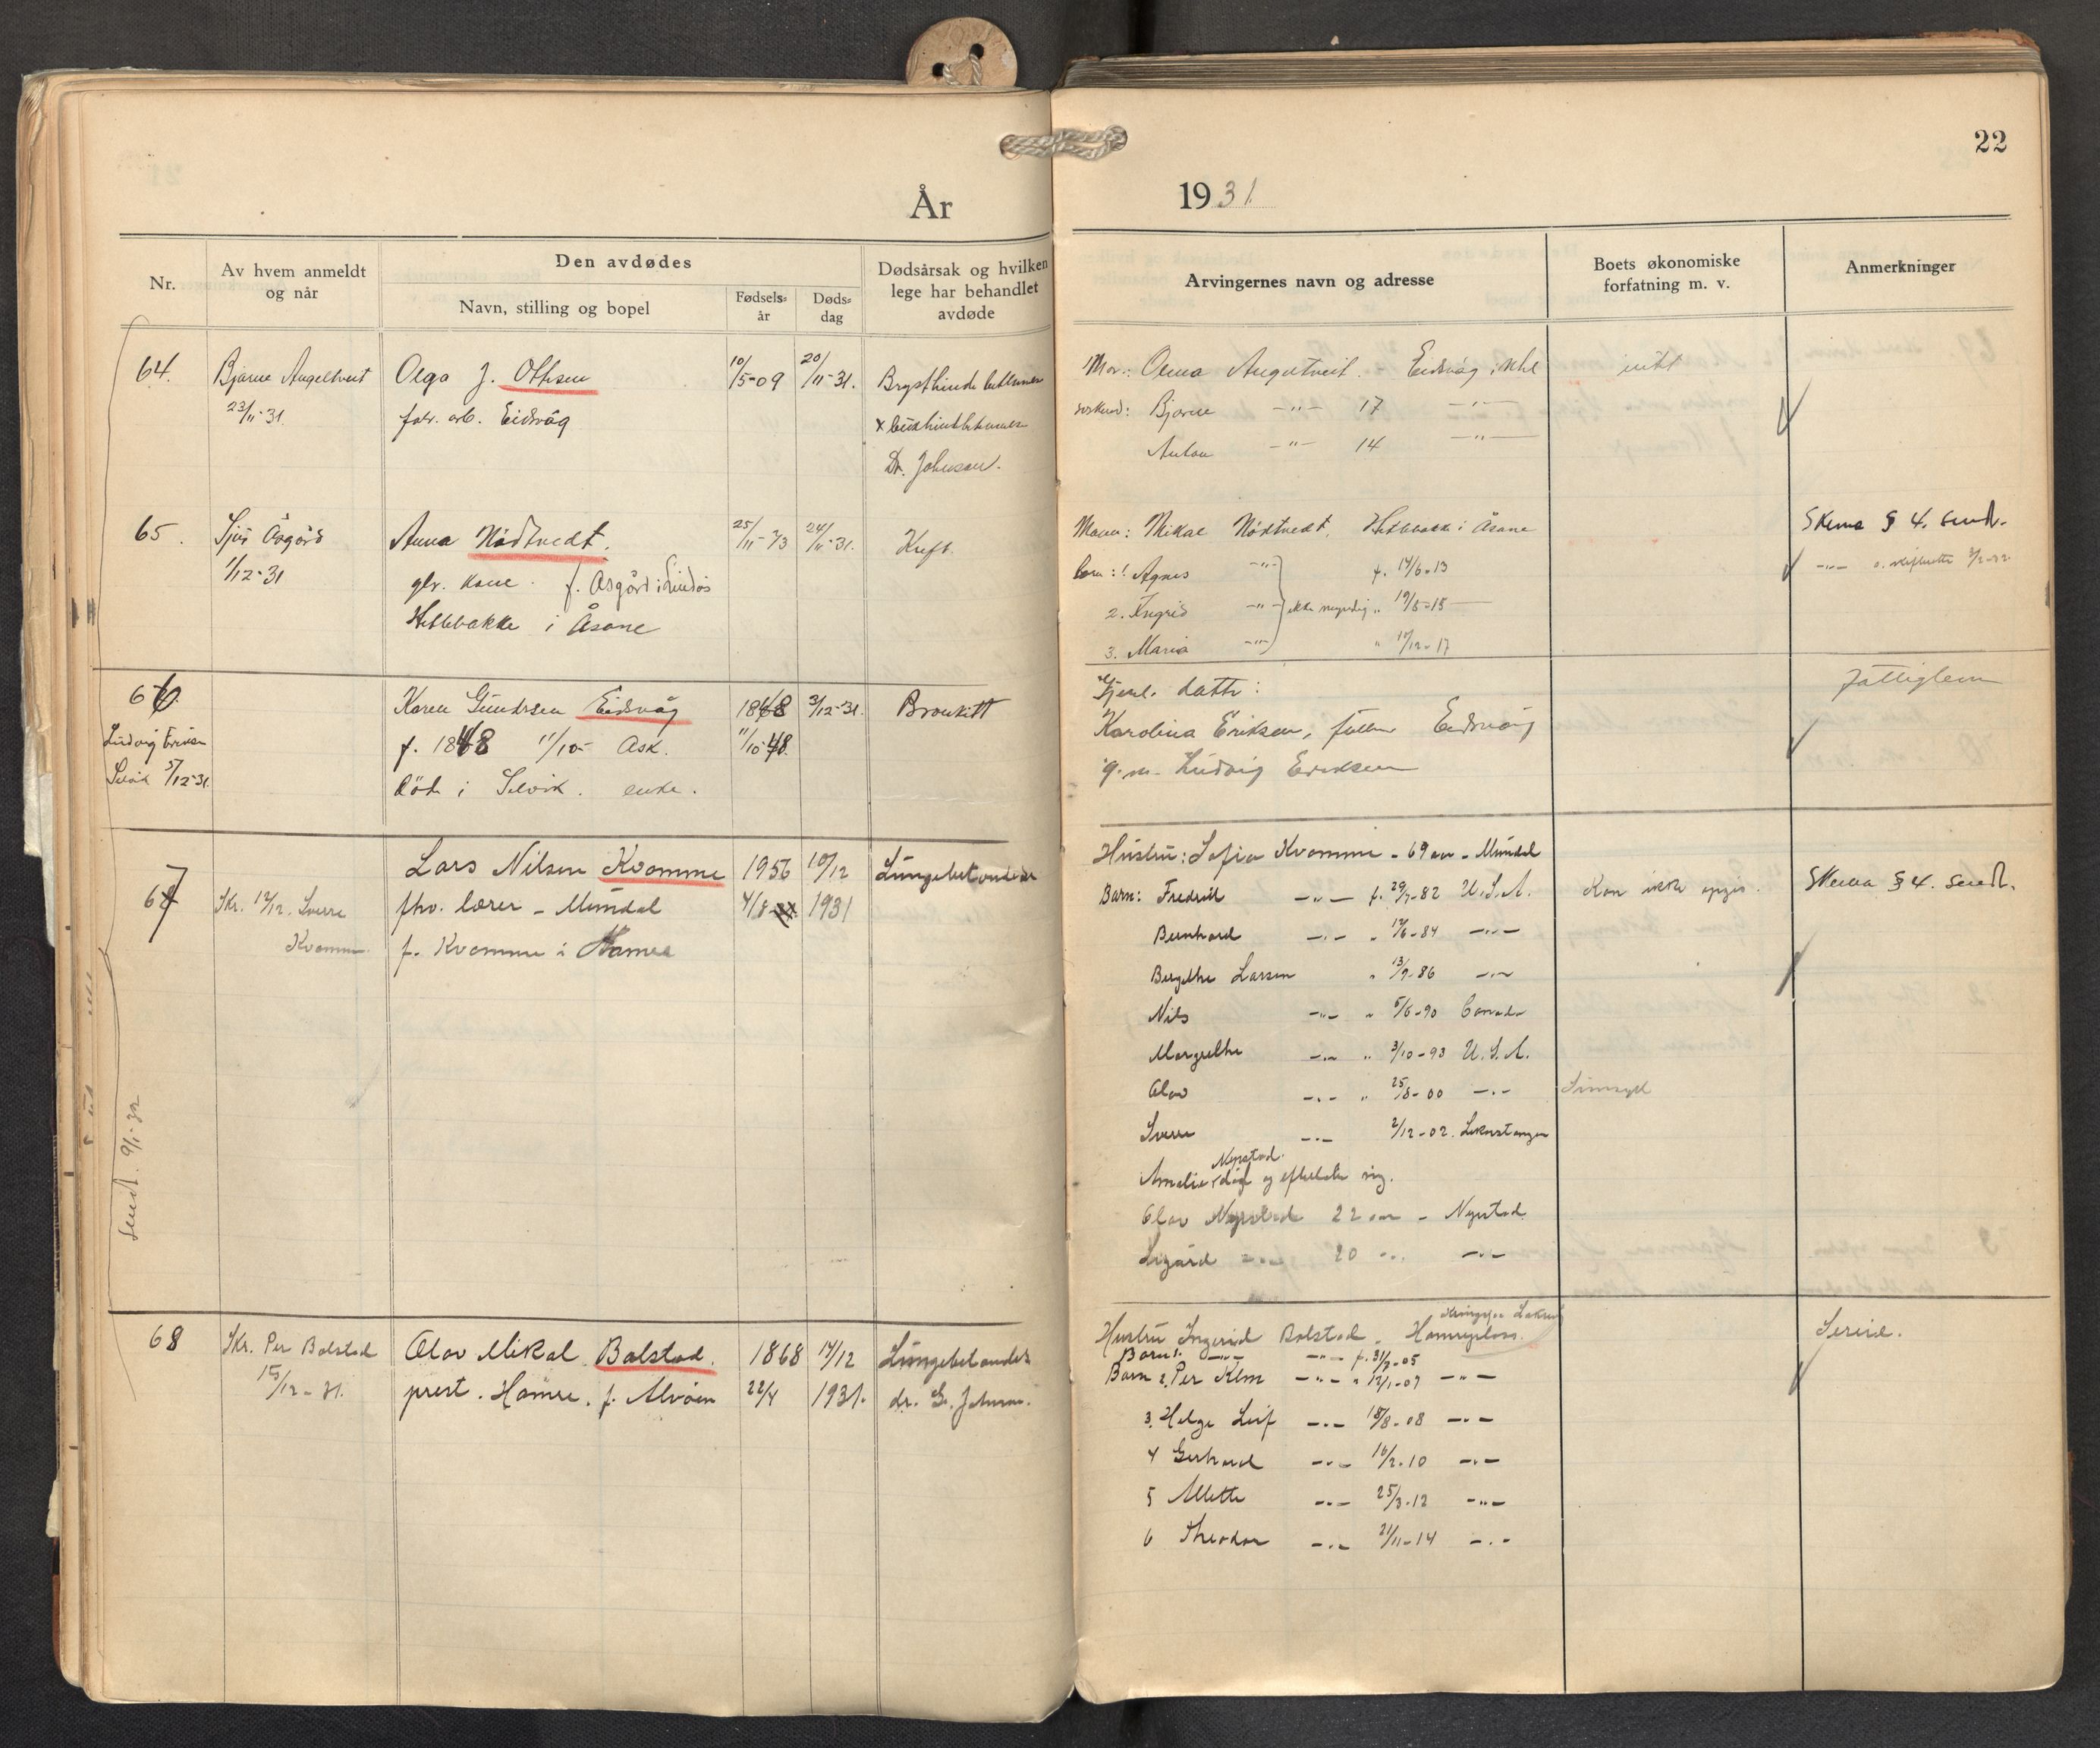 22
År 1931.
Nr.
Av hvem anmeldt og når
Den avdødes
Navn, stilling og bopel
Fødsels-år
Døds-dag
Dødsårsak og hvilken lege har behandlet avdøde
Arvingernes navn og adresse
Boets økonomiske forfatning m. v.
Anmerkninger
64. Bjarne Angeltveit Olga J. Ottesen 10/5-09 20/11-31.
23/11-31. fabr. arb. Eidsvåg
Dr. Johnson.
Mor: Anna Angeltveit. - Eidsvåg
intet
Bjarne -"- 17 -"-
Anton -"- 14 -"-
65. Sjur Åsgård Anna Nødtvedt. 25/11-73 24/11-31. Kreft.
1/12-31 f. Åsgård i Lindås
Hetlebakke i Åsane
Mann: Mikal Nødtvedt, Hetlebakke i Åsane
Skema § 4. sendt.
barn: 1 Agnes -"- f. 14/6-13
2. Ingrid -"- ikke myndig " 19/5-15
3. Maria -"- " 10/12-17
66. Karen Gundersen Eidsvåg 1848 3/12-31. Bronkitt
Ludvig Eriksen f. 1848 11/10- Ask. 11/10-48.
Selvik 5/12-31. død i Selvik. enke.
datter:
Karolina Eriksen, Eidsvåg
g. m. Ludvig Eriksen
67 Skr. 12/12. Sverre Kvamme
Lars Nilsen Kvamme 1956 10/12 Lungebetendelse
fhv. lærer - Mundal 4/8 1931
f. Kvamme i Hamre
Hustru: Sofia Kvamme - 69 aar - Mundal
Barn: Fredrik -"- f. 29/7-82 U.S.A.
Kan ikke opgis.
Skema § 4. sendt.
Bernhard -"- " 12/6-84 -"-
Bergithe Larsen " 13/9-86 -"-
Nils -"- " 5/6-90 Canada
Margrethe -"- " 3/10-93 U.S.A.
Olav -"- " 25/8-00 -"-
Sinnsyk
Sverre -"- 2/12-02.
Nyestad.
Amalie død og efterlater sig.
Olav 22 aar -
20 -"- -"-
Sendt. 9/1-32
68 Skr. Per Bolstad Olav Mikal Bolstad. 1868 14/12 Lungebetendelse
15/12-31. prest. Hamre. f. Alvøen 22/4 1931. dr. G. Johnson.
Hustru Ingerid Bolstad -
Barn 1. -"- -"- f. 31/3-05
Barn 2. Per Klm -"- " 12/1-07 -"-
3. Helge Leif -"- 18/8-08 -"-
4 Gerhard -"- 16/2-10 -"-
5 Mette -"- 25/3-12 -"-
6 Theodor -"- 21/11-14 -"-